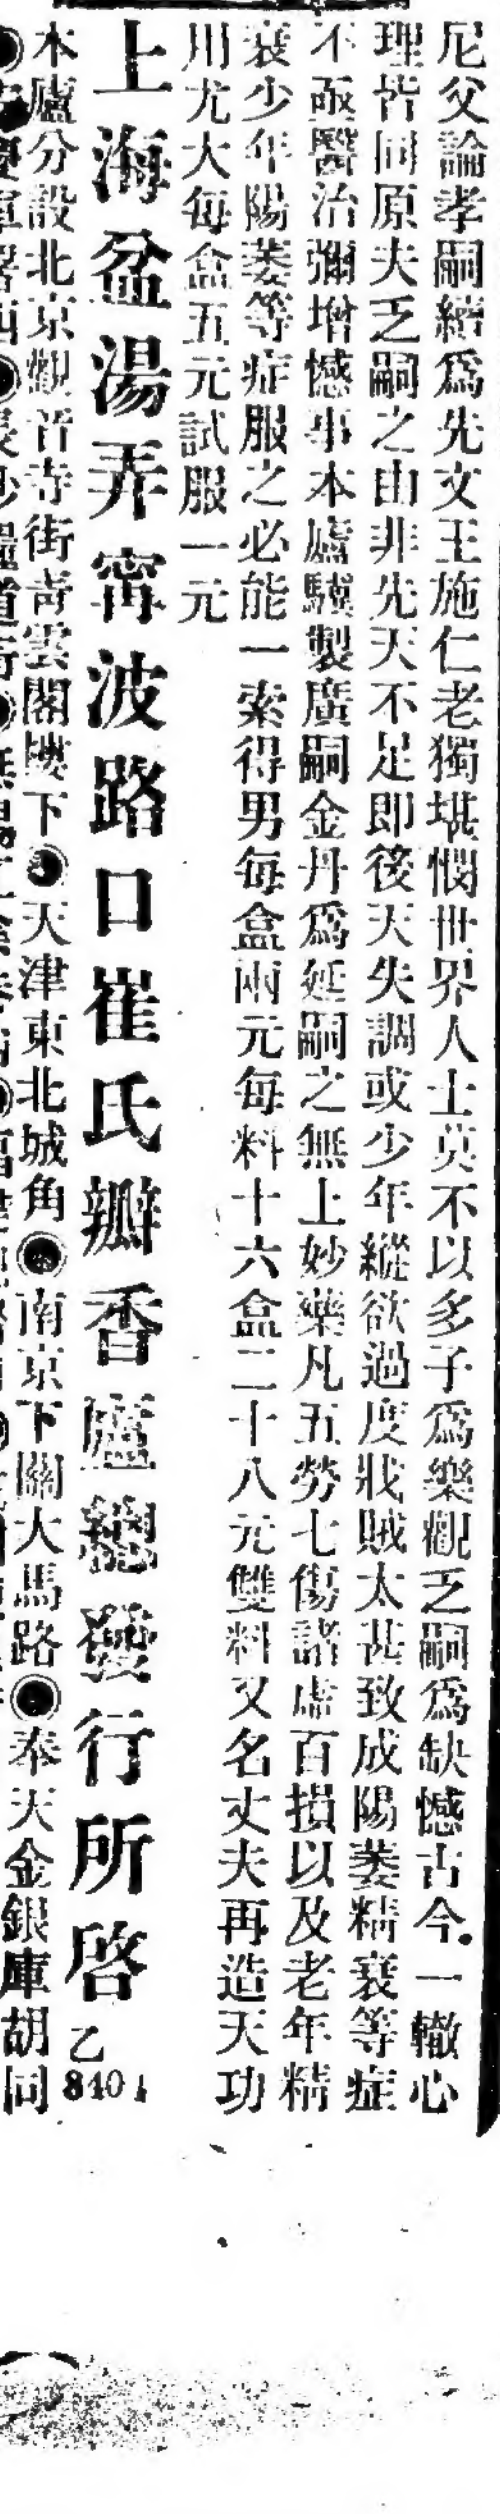 尼父論孝嗣續爲先文王施仁老獨堪憫世界人士莫不以多子爲樂觀乏嗣爲缺憾古今一轍心
理皆同原夫乏嗣之由非先天不足即後天失調或少年縱欲過度戕賊太甚致成陽萎精衰等症
不亟醫治彌增憾事本廬驗製廣嗣金丹爲延嗣之無上妙藥凡五勞七傷諸虛百損以及老年精
衰少年陽萎等症服之必能一索得男每盒兩元每料十六盒二十八元雙料又名丈夫再造天功
川尤大每盒五元試服一元
上海盆湯弄甯波路口崔氏瓣香廬總發行所啓 乙8401
本廬分設北京觀音寺街靑雲閣樓下●天津東北城角●南京下關大馬路●奉天金銀庫胡同